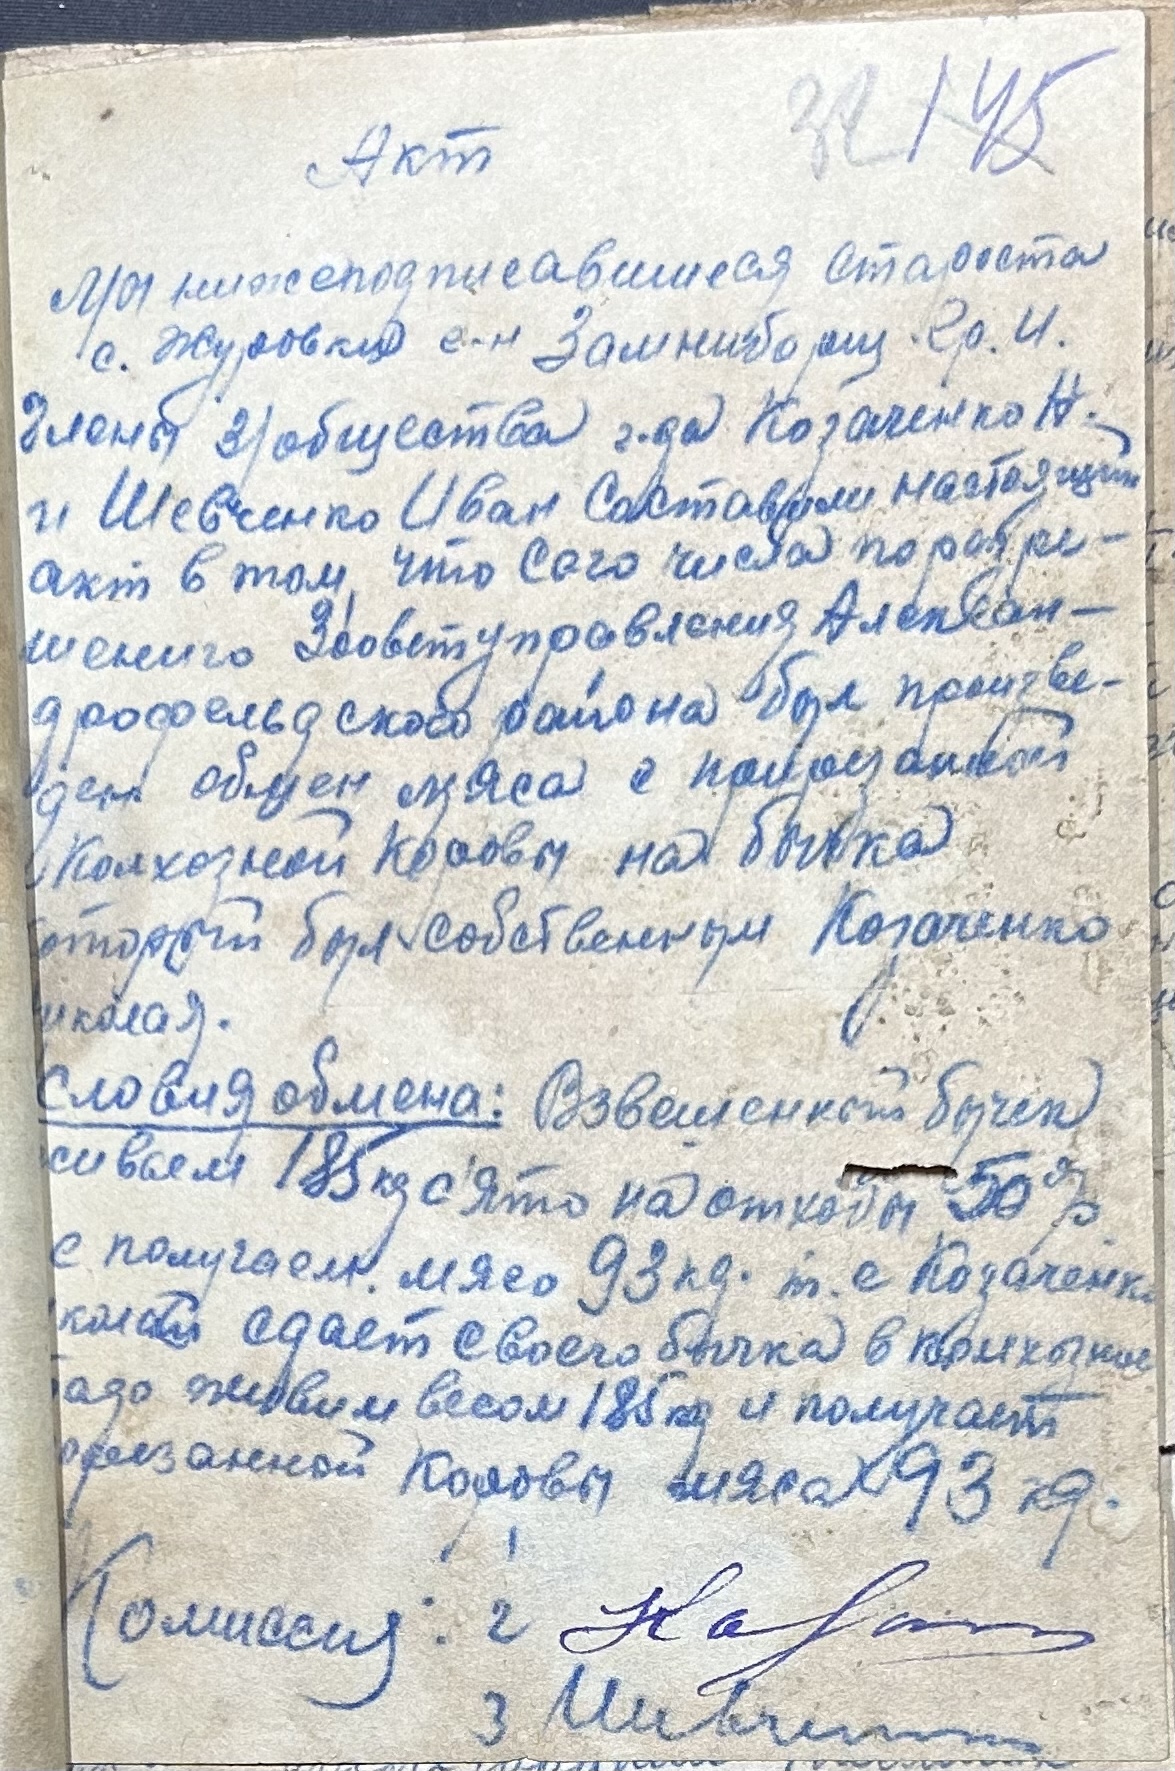 32 145
Акт
Мы нижеподписавшиеся староста
с. Журовки с-н Замниборщ Гр. И.
Члены З/общества г-да Козаченко Н.
и Шевченко Иван Составили настоящий
акт в том, что Сего числа по разре-
шениго Зооветуправления Алексан-
дрофельдского района был произве-
ден обмен мяса с прирезанной
Колхозной Коровы на бычка
оторый был собственным Козаченко
иколая.
словия обмена: Взвешенный бычек
живьем 185 кг с'ято на отходы 50%
с получаем. мясо 93 кг. т. е Козаченк
колай сдает своего бычка в колхозное
тадо живим весом 185 кг и получает
резанной Коровы мяса 93 кг.
1
Комиссия: 2
3 Шевченко